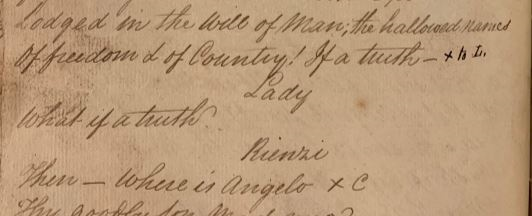 Lodged in the Will of Man; the hallowed names
Of freedom & of Country! If a truth – x to L.
Lady
What if a truth
Rienzi
Then – Where is Angelo x C
Thy goodly son